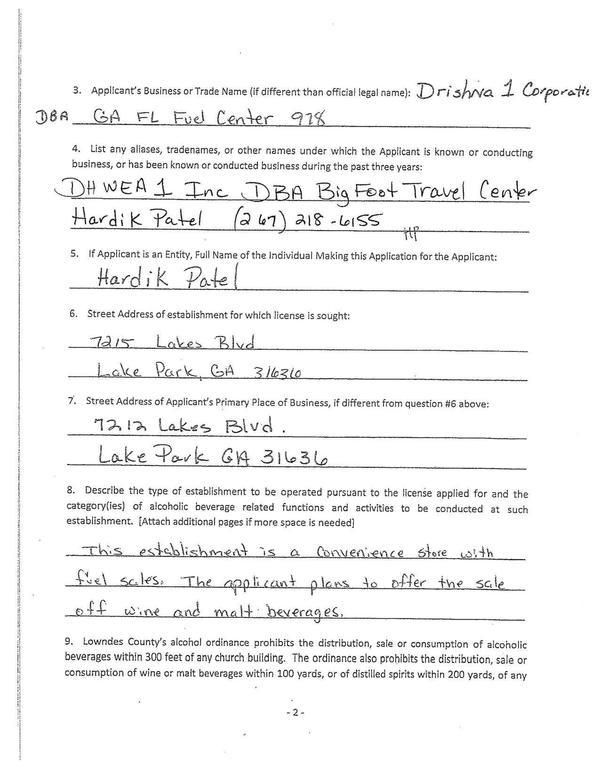 3. Applicant's Business or Trade Name (if different than official legal name): Drishva 1 Corporatic
DBA GA FL Fuel Center 978
4. List any aliases, tradenames, or other names under which the Applicant is known or conducting
business, or has been known or conducted business during the past three years:
DHWEA 1 Inc DBA Big Foot Travel Center
Hardik Patel (267) 218-6155
HP
5. If Applicant is an Entity, Full Name of the Individual Making this Application for the Applicant:
Hardik Patel
6. Street Address of establishment for which license is sought:
7215 Lakes Blvd
Lake Park, GA 31636
7. Street Address of Applicant's Primary Place of Business, if different from question #6 above:
7212 Lakes Blvd.
Lake Park GA 31636
8. Describe the type of establishment to be operated pursuant to the license applied for and the
category(ies) of alcoholic beverage related functions and activities to be conducted at such
establishment. [Attach additional pages if more space is needed]
This establishment is a convenience store with
fuel sales. The applicant plans to offer the sale
off wine and malt beverages.
9. Lowndes County's alcohol ordinance prohibits the distribution, sale or consumption of alcoholic
beverages within 300 feet of any church building. The ordinance also prohibits the distribution, sale or
consumption of wine or malt beverages within 100 yards, or of distilled spirits within 200 yards, of any
- 2 -